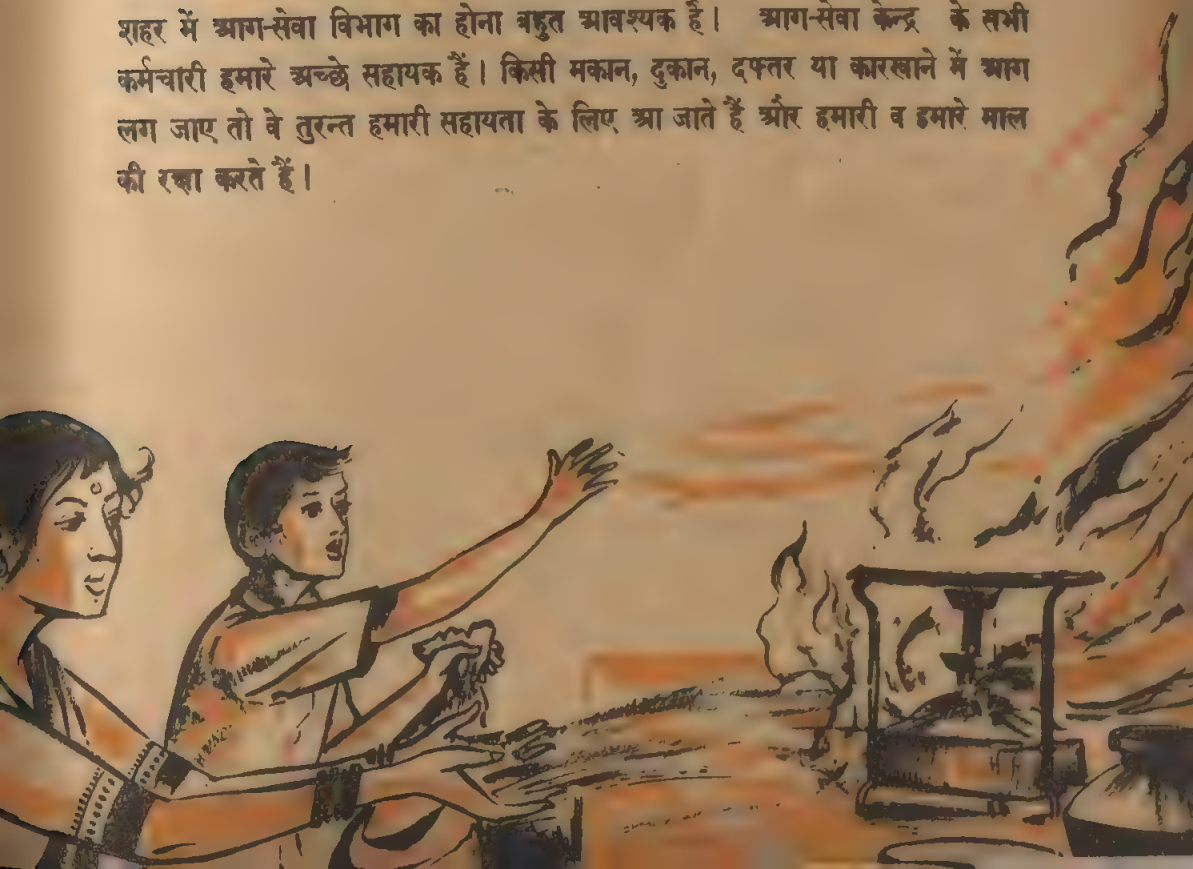 शहर में आग-सेवा विभाग का होना बहुत आवश्यक है। आग-सेवा केन्द्र के सभी
कर्मचारी हमारे अच्छे सहायक हैं। किसी मकान, दुकान, दफ्तर या कारखाने में आग
लग जाए तो वे तुरन्त हमारी सहायता के लिए आ जाते हैं और हमारी व हमारे माल
की रक्षा करते हैं।